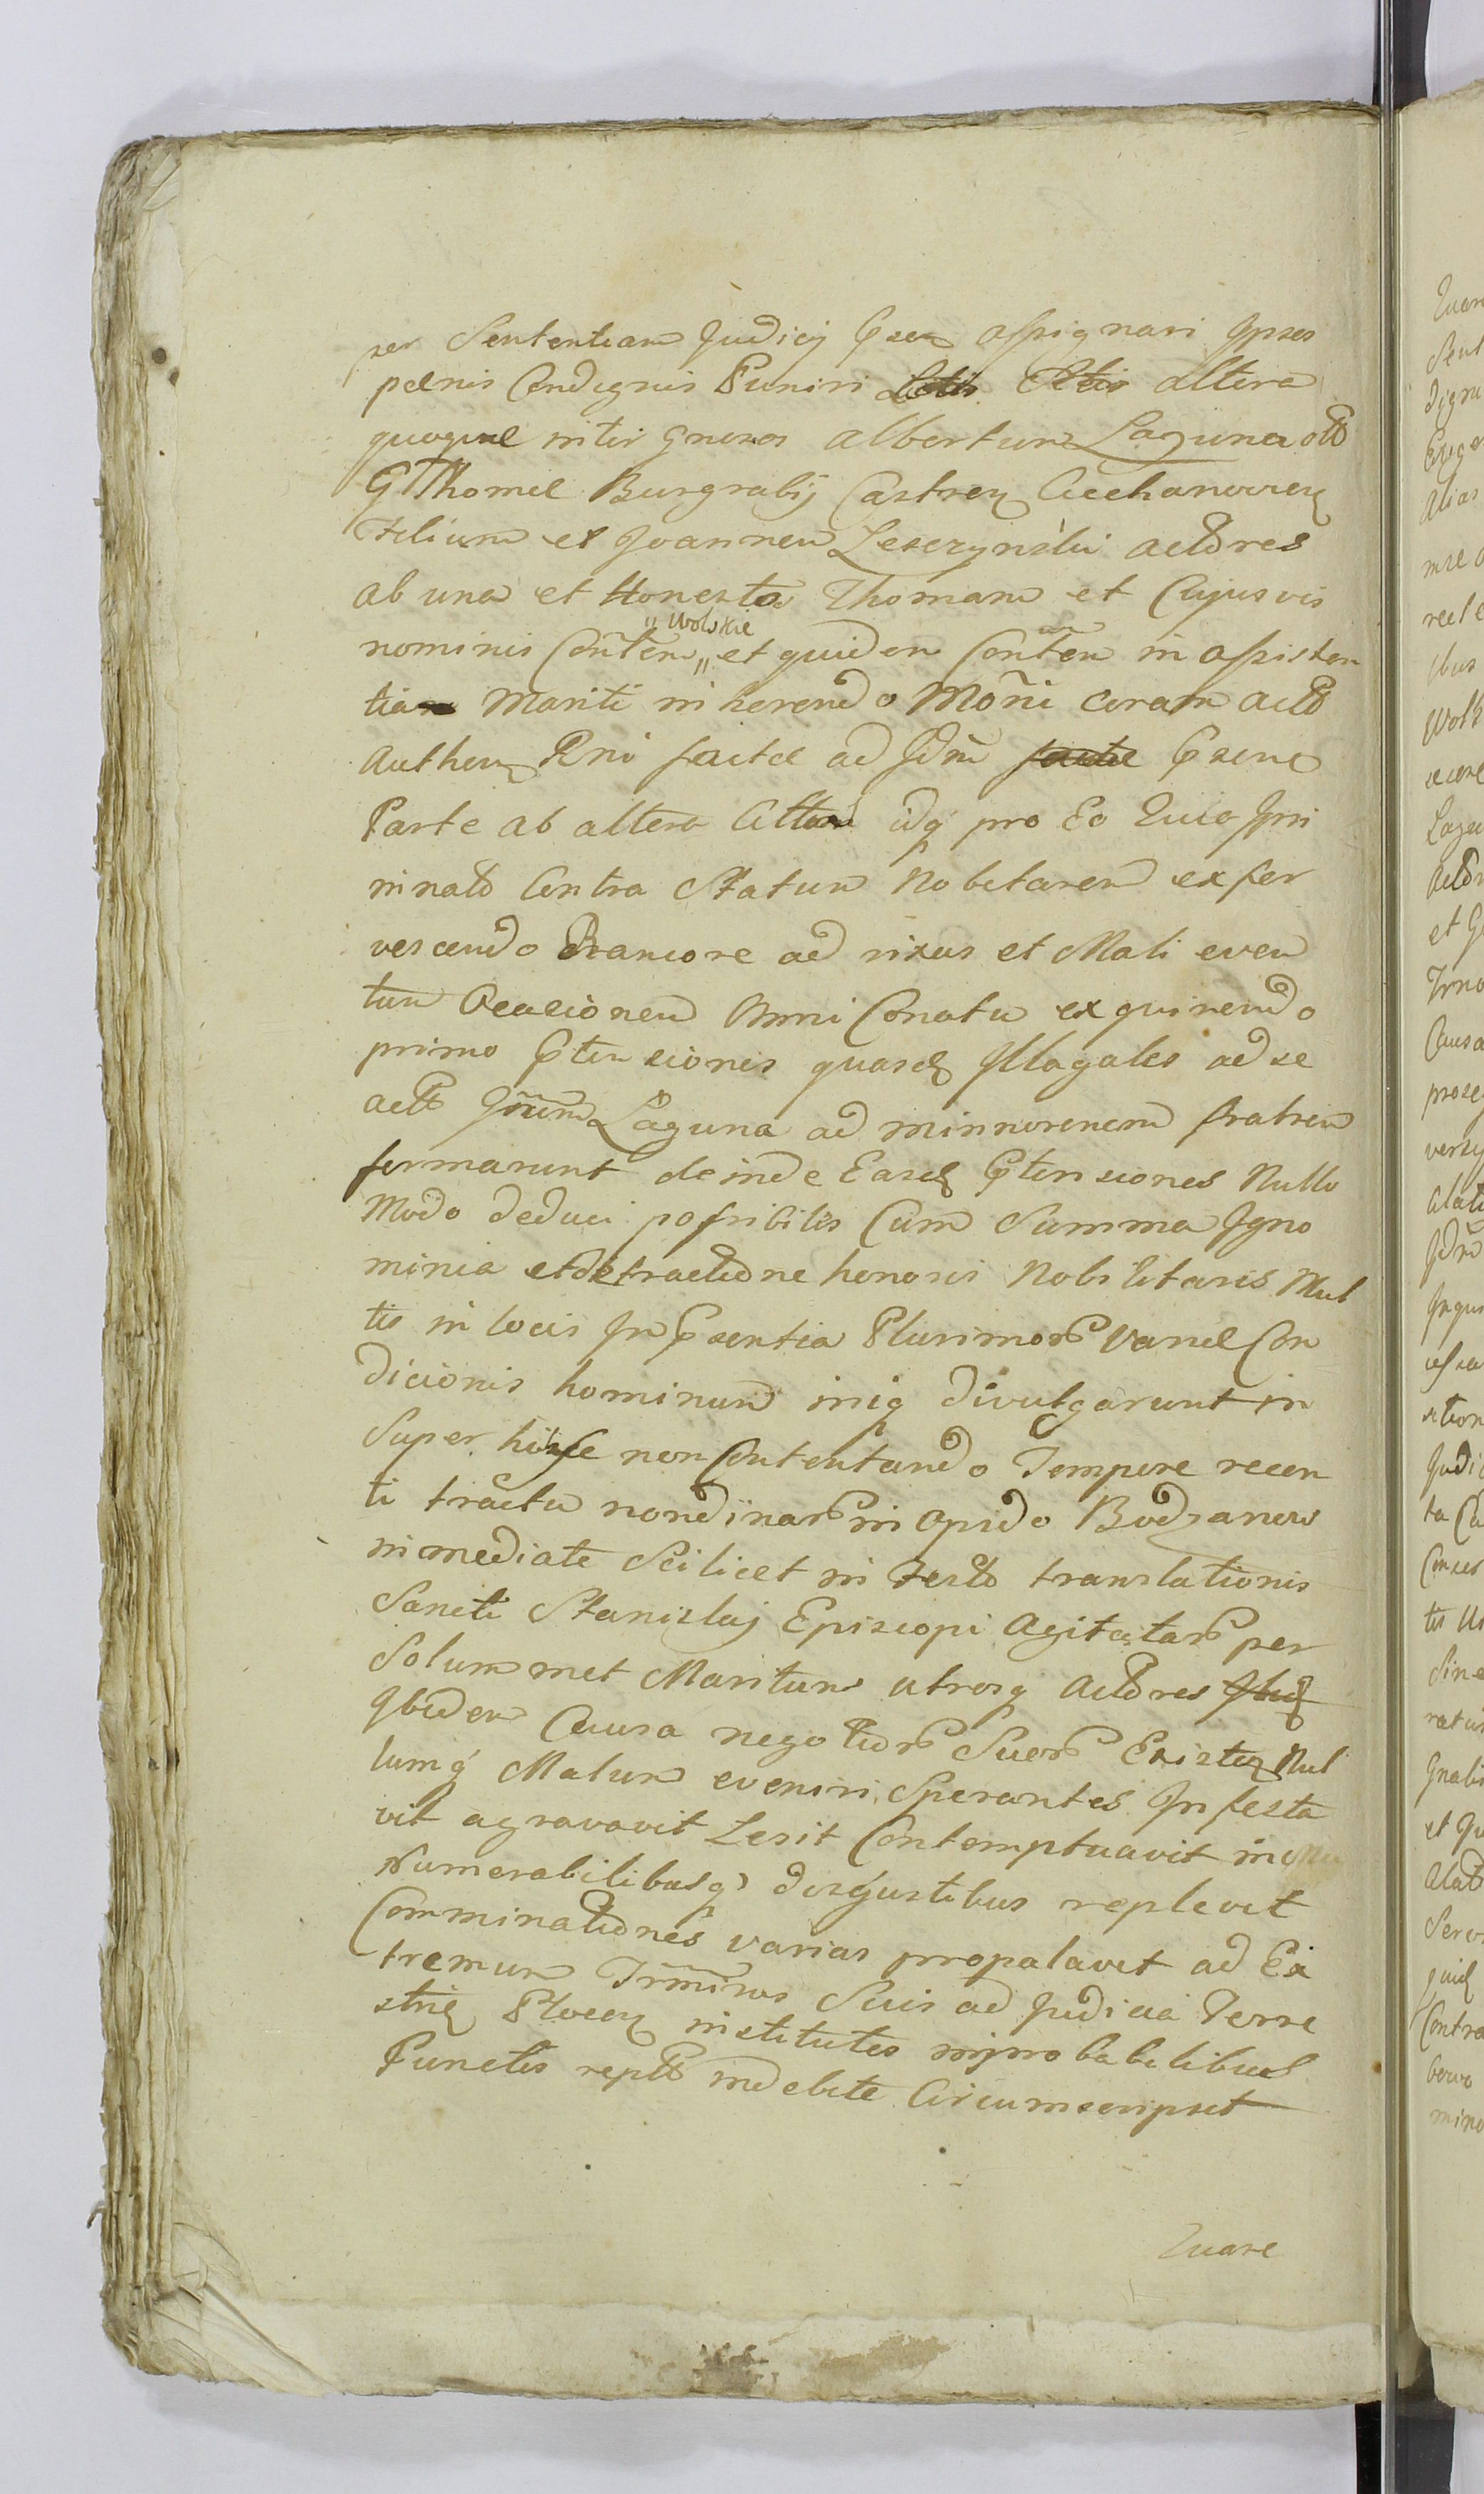 per Sententiam Judicij Psen assignari Ipsos
pœnis Condignis Puniri altera
quoque inter Gnosos Albertum Laguna
G Thomæ Burgrabij Castren Ciechanovien
Filium et Joannem Leszczynski actores
ab una et Honestos Thomam et Cujusvis
nominis Conthem „Wolskie„ et quidem Conthem in assisten
tiam Mariti inherendo Moñi coram acto
Authen Rni factæ ad Jdm factæ Psene
Parte ab altera idq pro Eo Quia Ipsi
innato Contra Statum Nobitarem exfer
vescendo Rancore ad rixas et Mali even
tum Occasionem Omni Conatu exquirendo
primo Ptensiones quasd Illagales ad se
Laguna ad minnorenem fratrem
formarunt deinde Easd Ptensiones Nullo
Modo deduci possibiles Cum Summa Igno
minia et detractione honoris Nobilitaris Mul
tis in locis In Psentia Plurimor Variæ Con
dicionis hominum iniq divulgarunt in
Super hisce non Contentando Tempore recen
ti tractu nondinar in opido Bodzanow
inmediate Scilicet in Festo translationis
Sancti Stanislaj Episcopi Agitatar per
Solummet Maritum utrosq Actores
Ibidem Causa negotior Suor Existen Nul
lumq Malum eveniri Sperantes Infesta
vit agravavit Lesit Contemptuavit in
Numerabilibusq disgustibus replevit
Comminationes varias propalavit ad Ex
tremum Trminos Suis ad Judicia Terre
stria Plocen institutes improbabilibus
Punctis indebite Circumscripsit
Quare